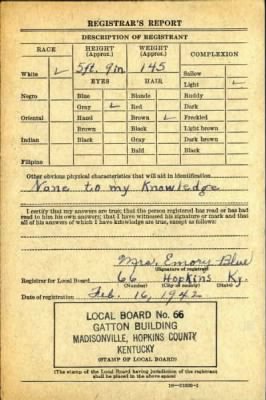 REGISTRAR'S REPORT
DESCRIPTION OF REGISTRANT
RACE HEIGHT (Approx.) WEIGHT (Approx.) COMPLEXION
5 ft. 9 in 145 Sallow
White ✓ EYES HAIR Light ✓
Negro Blue Blonde Ruddy
Gray ✓ Red Dark
Oriental Hazel Brown ✓ Freckled
Brown Black Light brown
Indian Black Gray Dark brown
Bald Black
Filipino
Other obvious physical characteristics that will aid in identification
None to my Knowledge
I certify that my answers are true; that the person registered has read or has had
read to him his own answers; that I have witnessed his signature or mark and that
all of his answers of which I have knowledge are true, except as follows:
Mrs. Emory Blue
(Signature of registrar)
Registrar for Local Board 66 Hopkins Ky.
(Number) (City or county) (State)
Date of registration Feb. 16, 1942
LOCAL BOARD No. 66
GATTON BUILDING
MADISONVILLE, HOPKINS COUNTY
KENTUCKY
(STAMP OF LOCAL BOARD)
(The stamp of the Local Board having jurisdiction of the registrant
shall be placed in the above space)